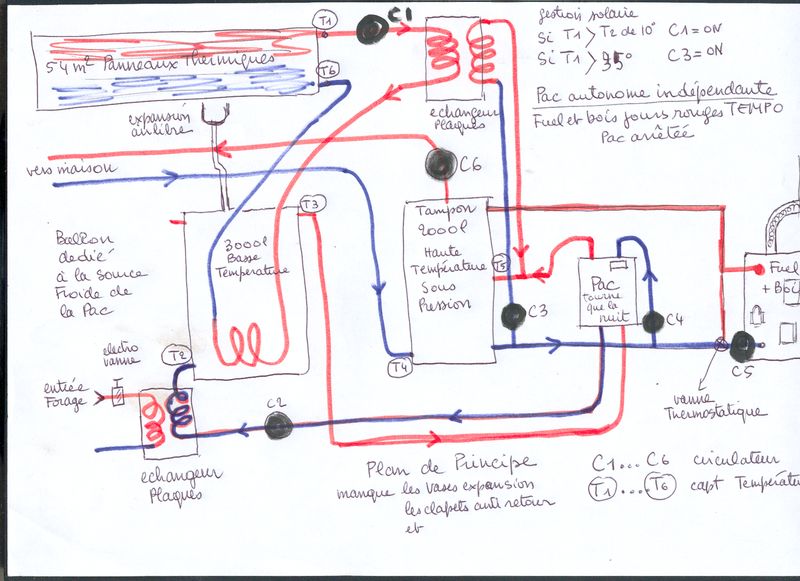 T1
C1
gestion solaire
Si T1 > T2 de 10° C1 = ON
Si T1 > 95° C3 = ON
54 m² Panneaux Thermiques
T6
Pac autonome indépendante
Fuel et bois jours rouges TEMPO
Pac arrêtée
echangeur
Plaques
expansion
air libre
vers maison
C6
T3
Tampon
2000l
Haute
Température
Sous
Pression
3000l
Basse
Température
Ballon
dedié
à la source
Froide de
la Pac
T5
Pac
tourne
que la
nuit
Fuel
+ Boi
C3
C4
C5
T2
T4
electro
vanne
entrée
Forage
C2
vanne
Thermostatique
echangeur
Plaques
Plan de Principe
manque les vases expansion
les clapets anti retour
et
C1...C6 circulateur
T1....T6 capt Températu